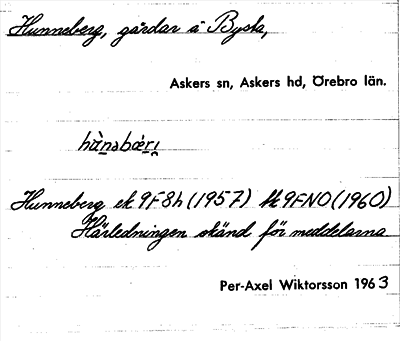 Hunneberg, gårdar å Bysta,
Askers sn, Askers hd, Örebro län.
hùnabæ̀rı
Hunneberg ek 9F8h (1957) tk 9FNO (1960)
Härledningen okänd för meddelarna
Per-Axel Wiktorsson 1963